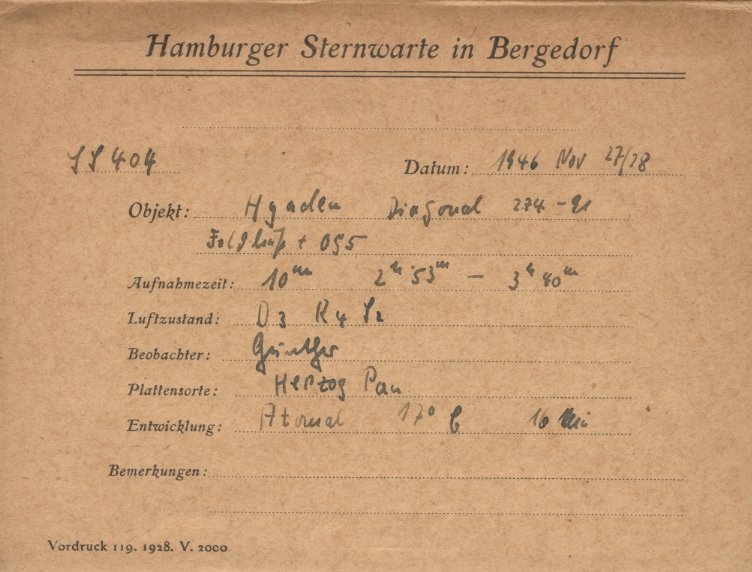 Hamburger Sternwarte in Bergedorf
SS 404 Datum: 1946 Nov 27/28
Objekt: Hyaden Diagonal 274
+ 095
Aufnahmezeit: 10m 2h 53m – 3h 40m
Luftzustand: D3 R4 S2
Beobachter: Günther
Plattensorte: Herzog Pan
Entwicklung: Atomal 17° C 16 Min
Bemerkungen:
Vordruck 119. 1928. V. 2000